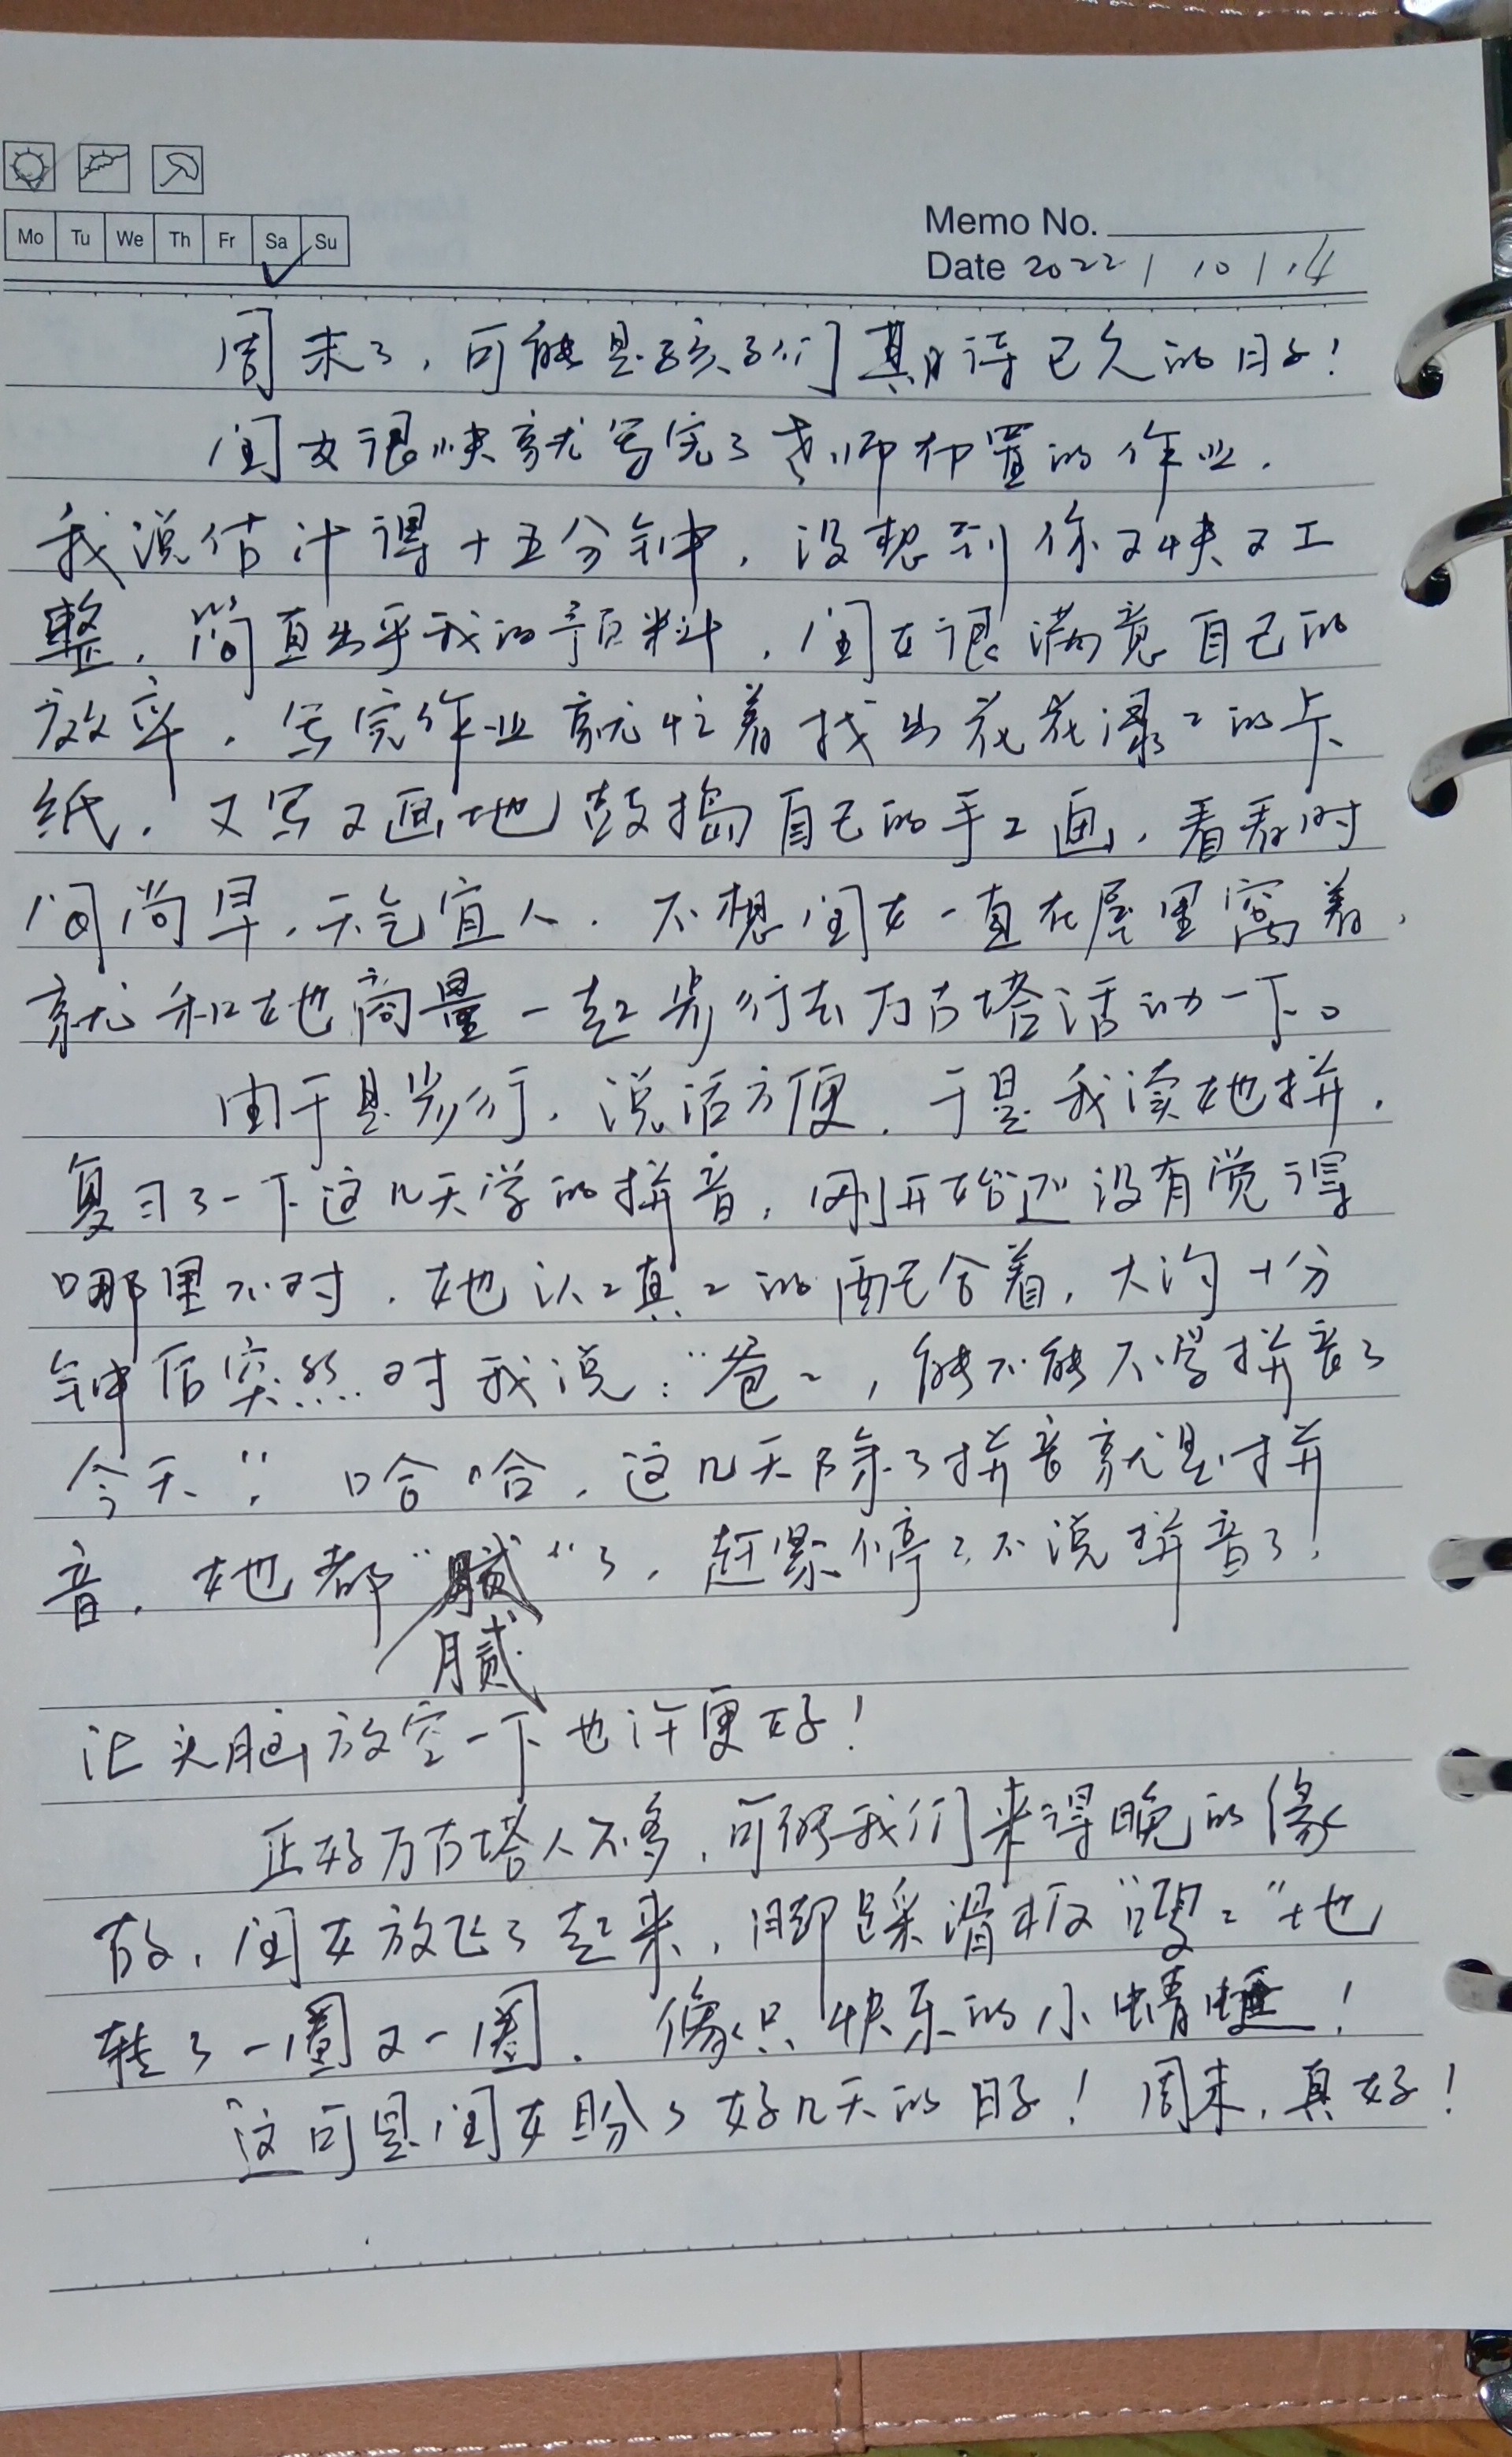 Mo Tu We Th Fr Sa Su
Memo No.
Date 2022/10/14
周末了，可能是孩子们期待已久的日子！
闺女很快就写完了老师布置的作业，
我说估计得十五分钟，没想到你又快又工
整，简直出乎我的预料，闺女很满意自己的
效率，写完作业就忙着找出花花漾々的卡
纸，又写又画地鼓捣自己的手工画，看看时
间尚早，天气宜人，不想闺女一直在屋里窝着，
就和她商量一起步行去万古塔活动一下。
由于是步行，说话方便，于是我读她拼，
复习了一下这几天学的拼音，刚开始还没有觉得
哪里不对，她认々真々的配合着，大约十分
钟后突然对我说：“爸々，能不能不学拼音了
今天”，哈哈，这几天除了拼音就是拼
音，她都“腻”了，赶紧停了不说拼音了！
腻
让头脑放空一下也许更好！
正好万古塔人不多，可能我们来得晚的缘
故，闺女放飞了起来，脚踩滑板“嗖々”地
转了一圈又一圈，像只快乐的小蜻蜓！
这可是闺女盼了好几天的日子！周末，真好！